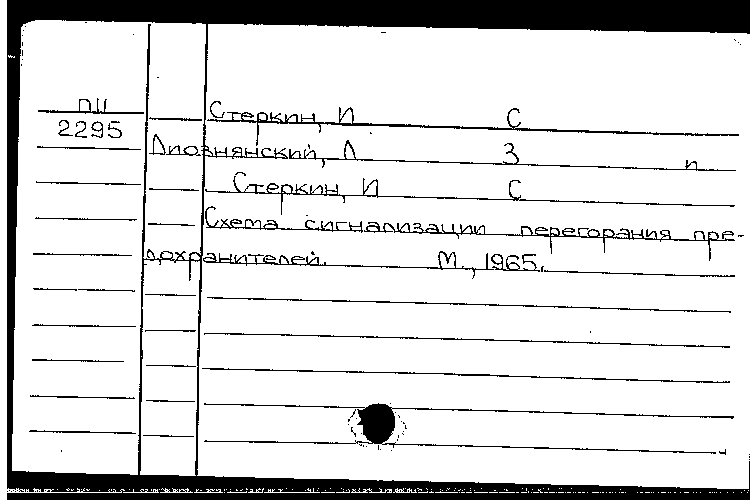 ПЦ
2295
Стеркин, И С
Лиознянский, Л З и
Стеркин, И С
Схема сигнализации перегорания пре-
дохранителей. М., 1965.